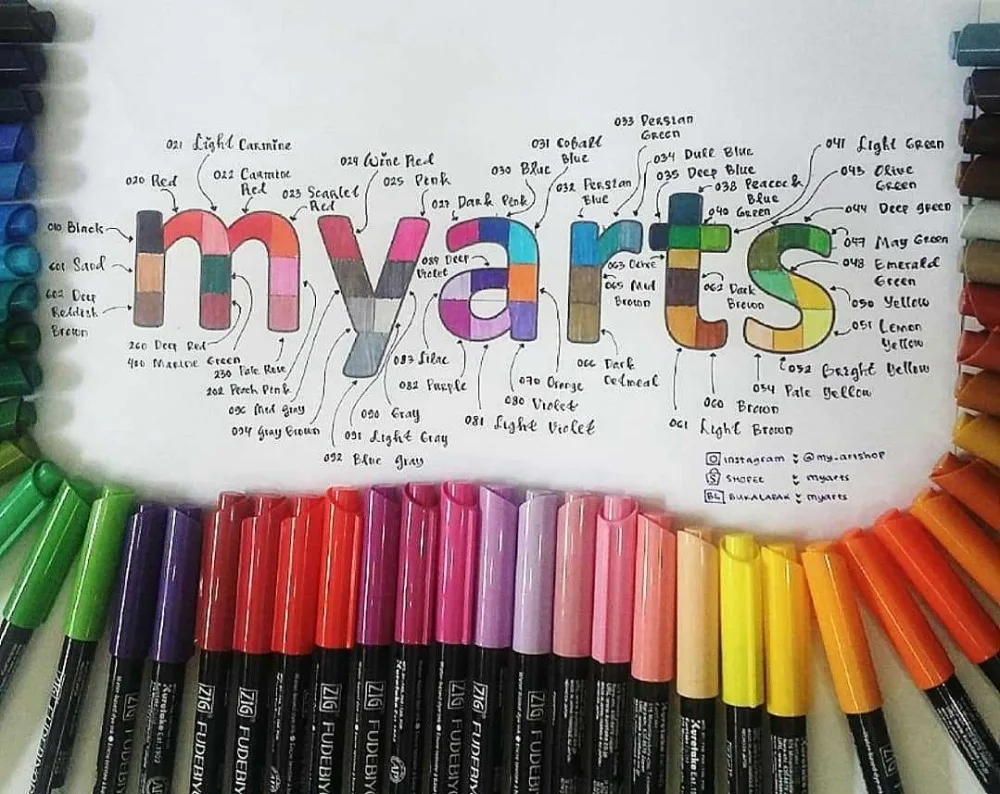 021 Light Carmine
020 Red
022 Carmine
Red
023 Scarlet
Red
010 Black
601 Sand
602 Deep
Reddish
Brown
260 Deep Red
400 Marine Green
230 Pale Rose
202 Peach Pink
096 Mid Gray
094 Gray Brown
024 Wine Red
025 Pink
myarts
027 Dark Pink
030 Blue
031 Cobalt
Blue
032 Persian
Blue
033 Persian
Green
034 Dull Blue
035 Deep Blue
038 Peacock
Blue
040 Green
041 Light Green
043 Olive
Green
044 Deep green
047 May Green
048 Emerald
Green
050 Yellow
051 Lemon
Yellow
052 Bright Yellow
054 Pale Yellow
060 Brown
061 Light Brown
062 Dark
Brown
063 Ochre
065 Mid
Brown
066 Dark
Oatmeal
070 Orange
080 Violet
081 Light Violet
082 Purple
083 Lilac
089 Deep
Violet
090 Gray
091 Light Gray
092 Blue Gray
instagram : @my_artshop
SHOPEE : myarts
BL BUKALAPAK : myarts
ZIG
ZIG FUDEBIYO
ZIG FUDEBIYO
ZIG FUDEBI
ZIG FUDEBIYO
ZIG FUDEBIYO
ZIG FUDEBIYO
ZIG FUDEB
Kuretake